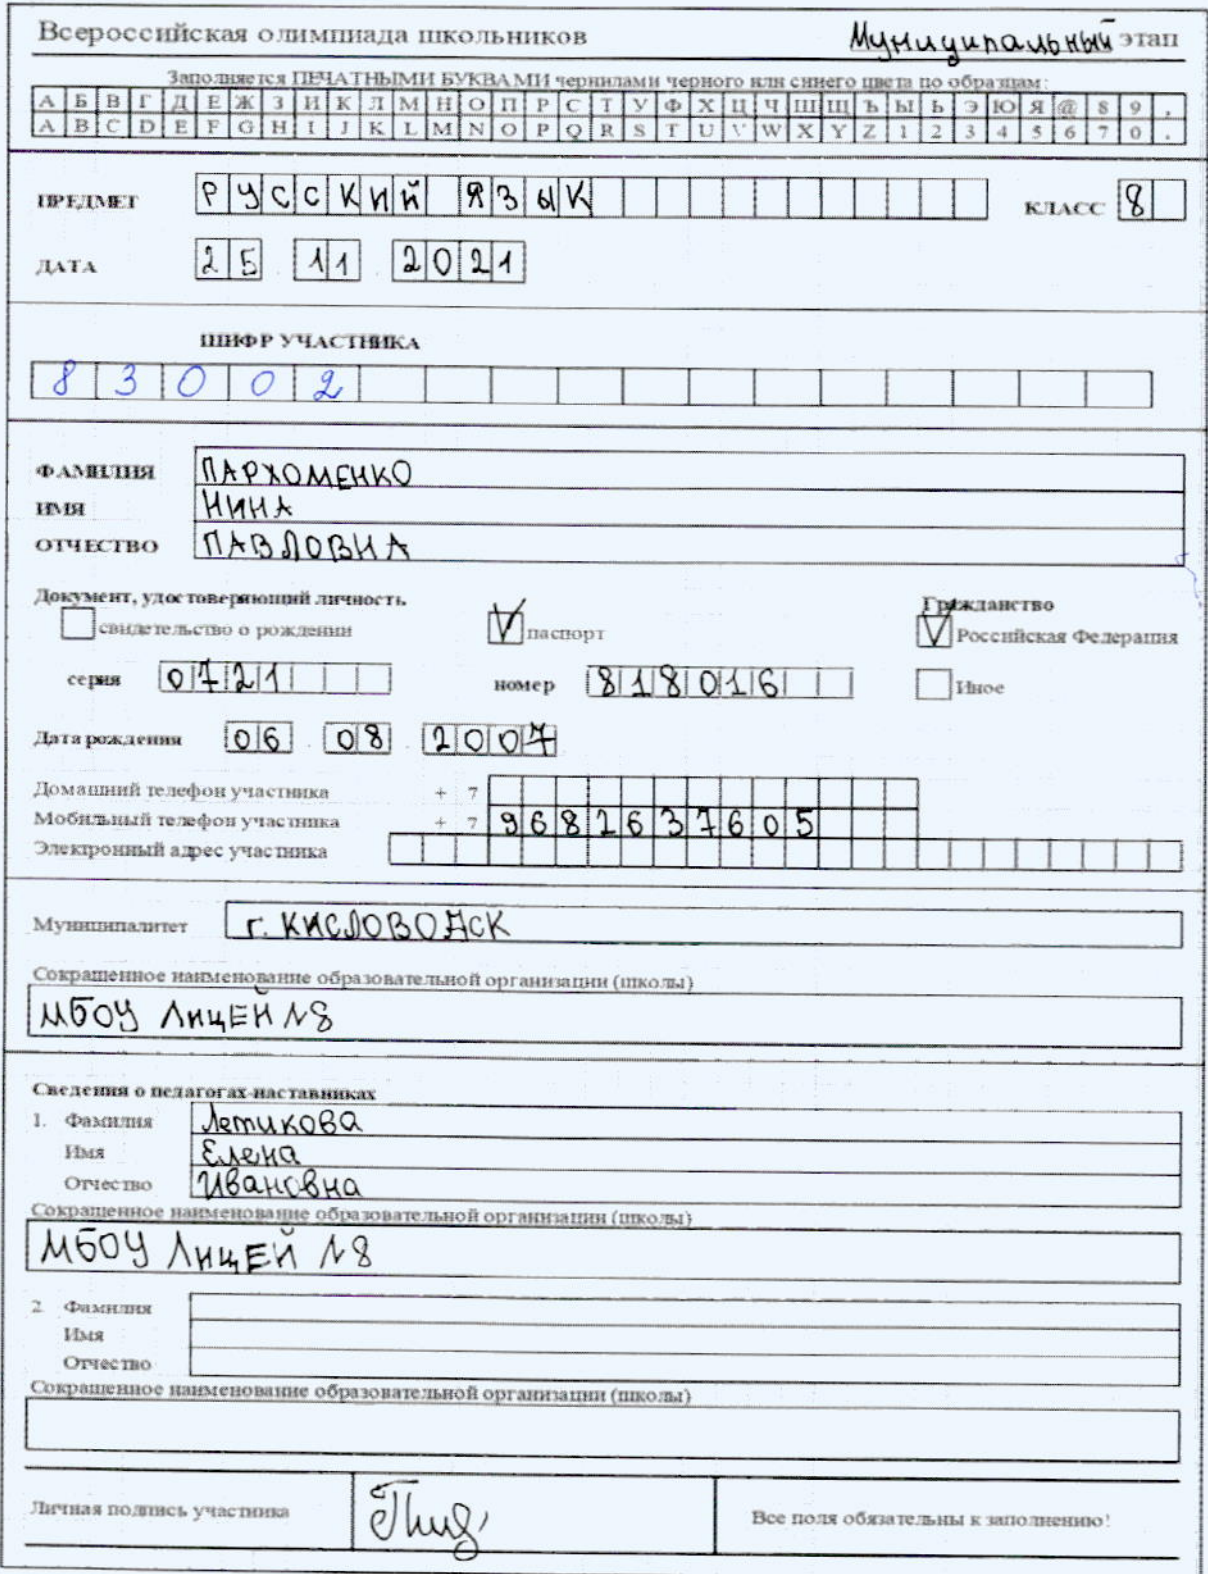 Всероссийская олимпиада школьников Муниципальный этап
Заполняется ПЕЧАТНЫМИ БУКВАМИ чернилами черного или синего цвета по образцам:
А Б В Г Д Е Ж З И К Л М Н О П Р С Т У Ф Х Ц Ч Ш Щ Ъ Ы Ь Э Ю Я @ 8 9 ,
A B C D E F G H I J K L M N O P Q R S T U V W X Y Z 1 2 3 4 5 6 7 0 .
ПРЕДМЕТ РУССКИЙ ЯЗЫК КЛАСС 8
ДАТА 25 . 11 . 2021
ШИФР УЧАСТНИКА
83002
ФАМИЛИЯ ПАРХОМЕНКО
ИМЯ НИНА
ОТЧЕСТВО ПАВЛОВНА
Документ, удостоверяющий личность Гражданство
свидетельство о рождении V паспорт V Российская Федерация
серия 0721 номер 818016 Иное
Дата рождения 06 . 08 . 2007
Домашний телефон участника + 7
Мобильный телефон участника + 7 9682637605
Электронный адрес участника
Муниципалитет г. КИСЛОВОДСК
Сокращенное наименование образовательной организации (школы)
МБОУ ЛИЦЕЙ №8
Сведения о педагогах-наставниках
1. Фамилия Летикова
Имя Елена
Отчество Ивановна
Сокращенное наименование образовательной организации (школы)
МБОУ ЛИЦЕЙ №8
2. Фамилия
Имя
Отчество
Сокращенное наименование образовательной организации (школы)
Личная подпись участника Все поля обязательны к заполнению!